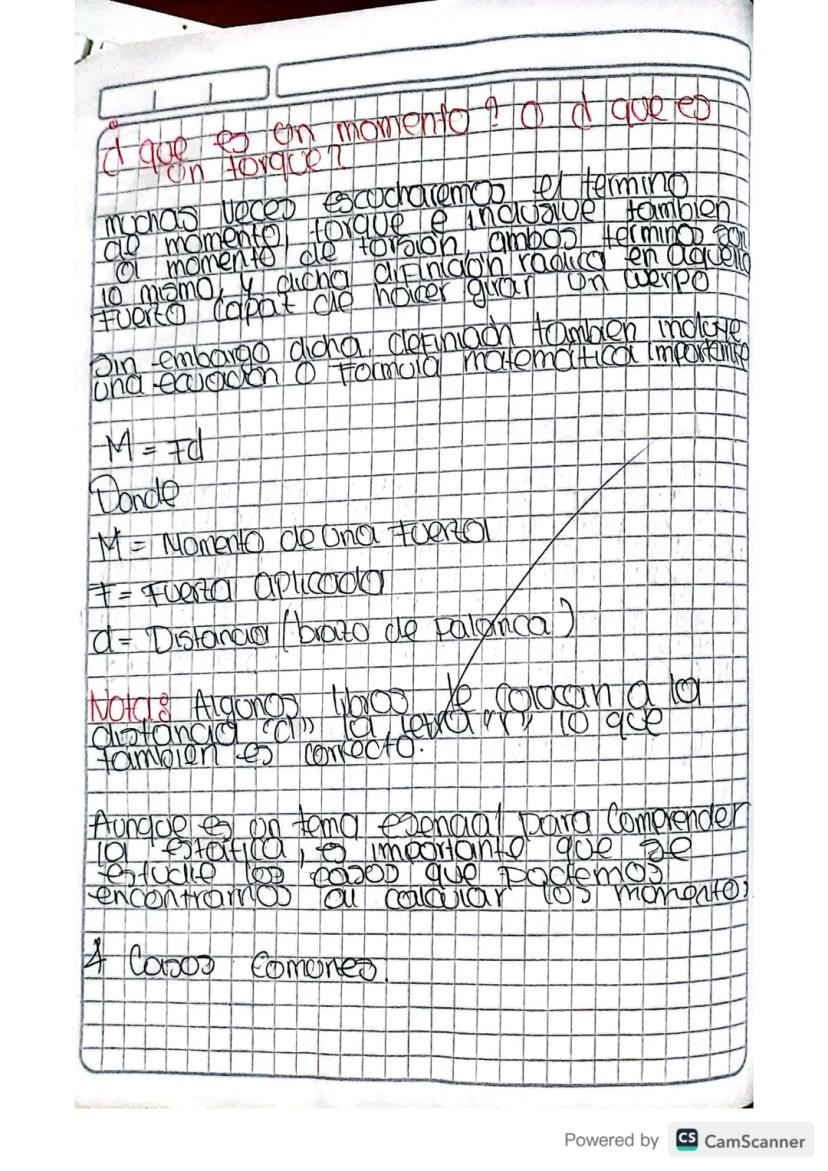 ¿que es un momento? O ¿que es
un torque?
muchas veces escucharemos el termino
de momento, torque e inclusive tambien
al momento de torsión, ambos terminos son
lo mismo, y dicha difinición radica en aquella
fuerza capaz de hacer girar un cuerpo
Sin embargo dicha definición tambien incluye
una ecuación o formula matemática importante
M = Fd
Donde
M = Momento de una fuerza
F = Fuerza aplicada
d = Distancia (brazo de palanca)
Nota: Algunos libros le colocan a la
distancia "d" la letra "r", lo que
tambien es correcto.
Aunque es un tema esencial para comprender
la estática, es importante que se
estudie los casos que podemos
encontrarnos al calcular los momentos
4 Casos Comunes.
Powered by CS CamScanner